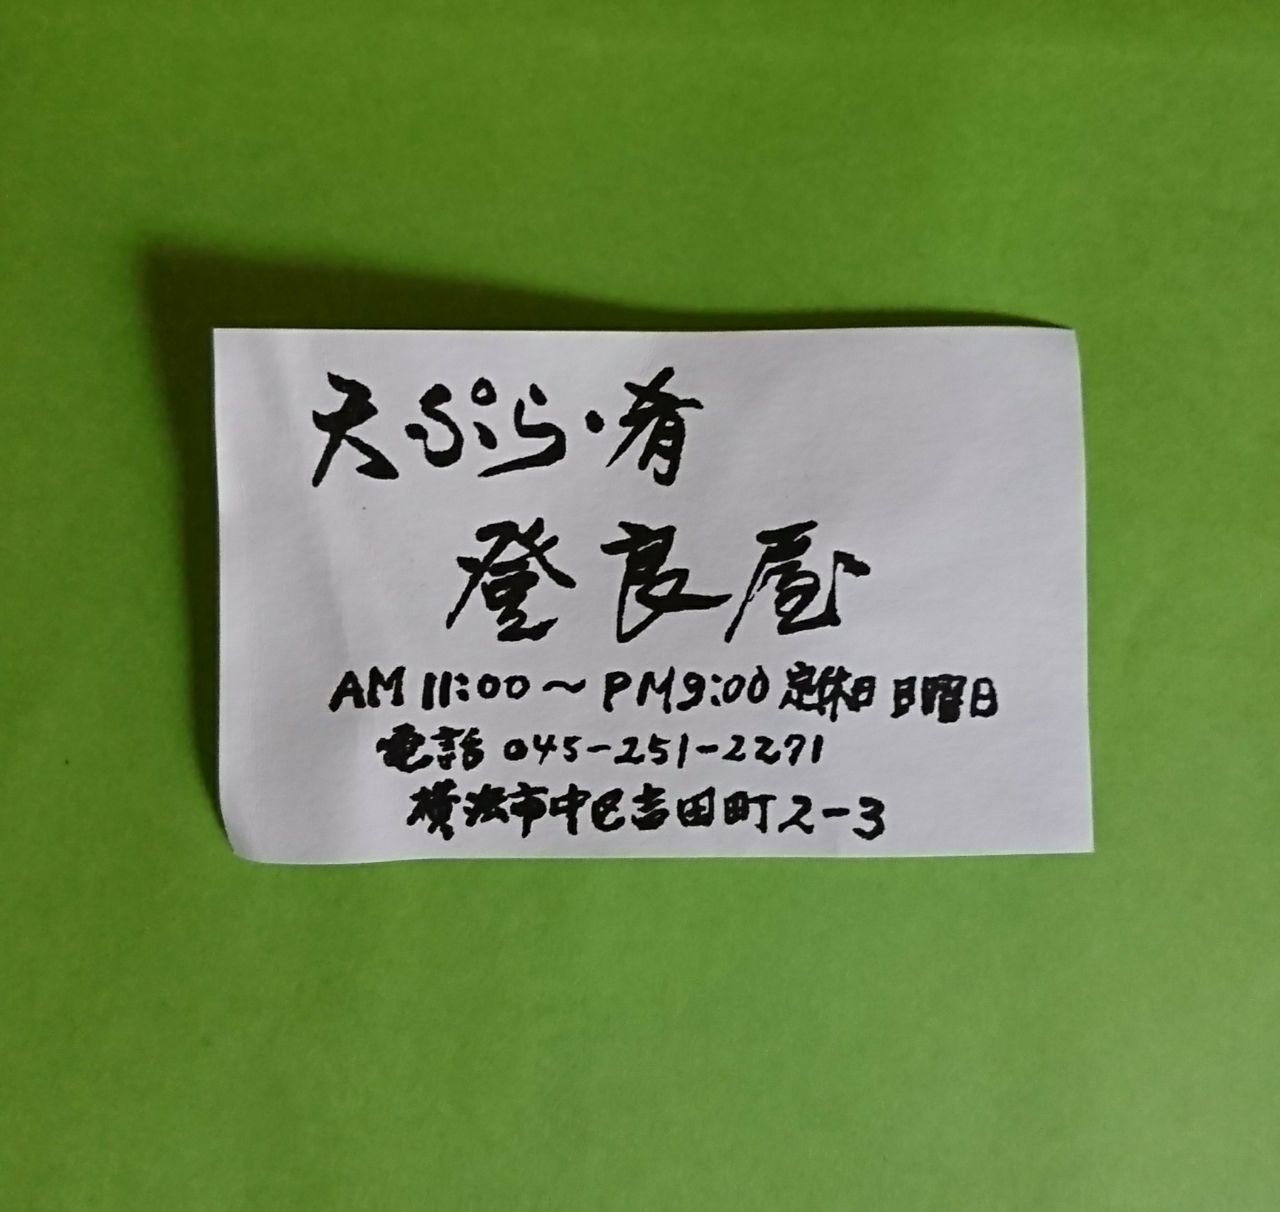 天ぷら・肴
登良屋
AM11:00～PM9:00 定休日 日曜日
電話 045-251-2271
横浜市中区吉田町2-3